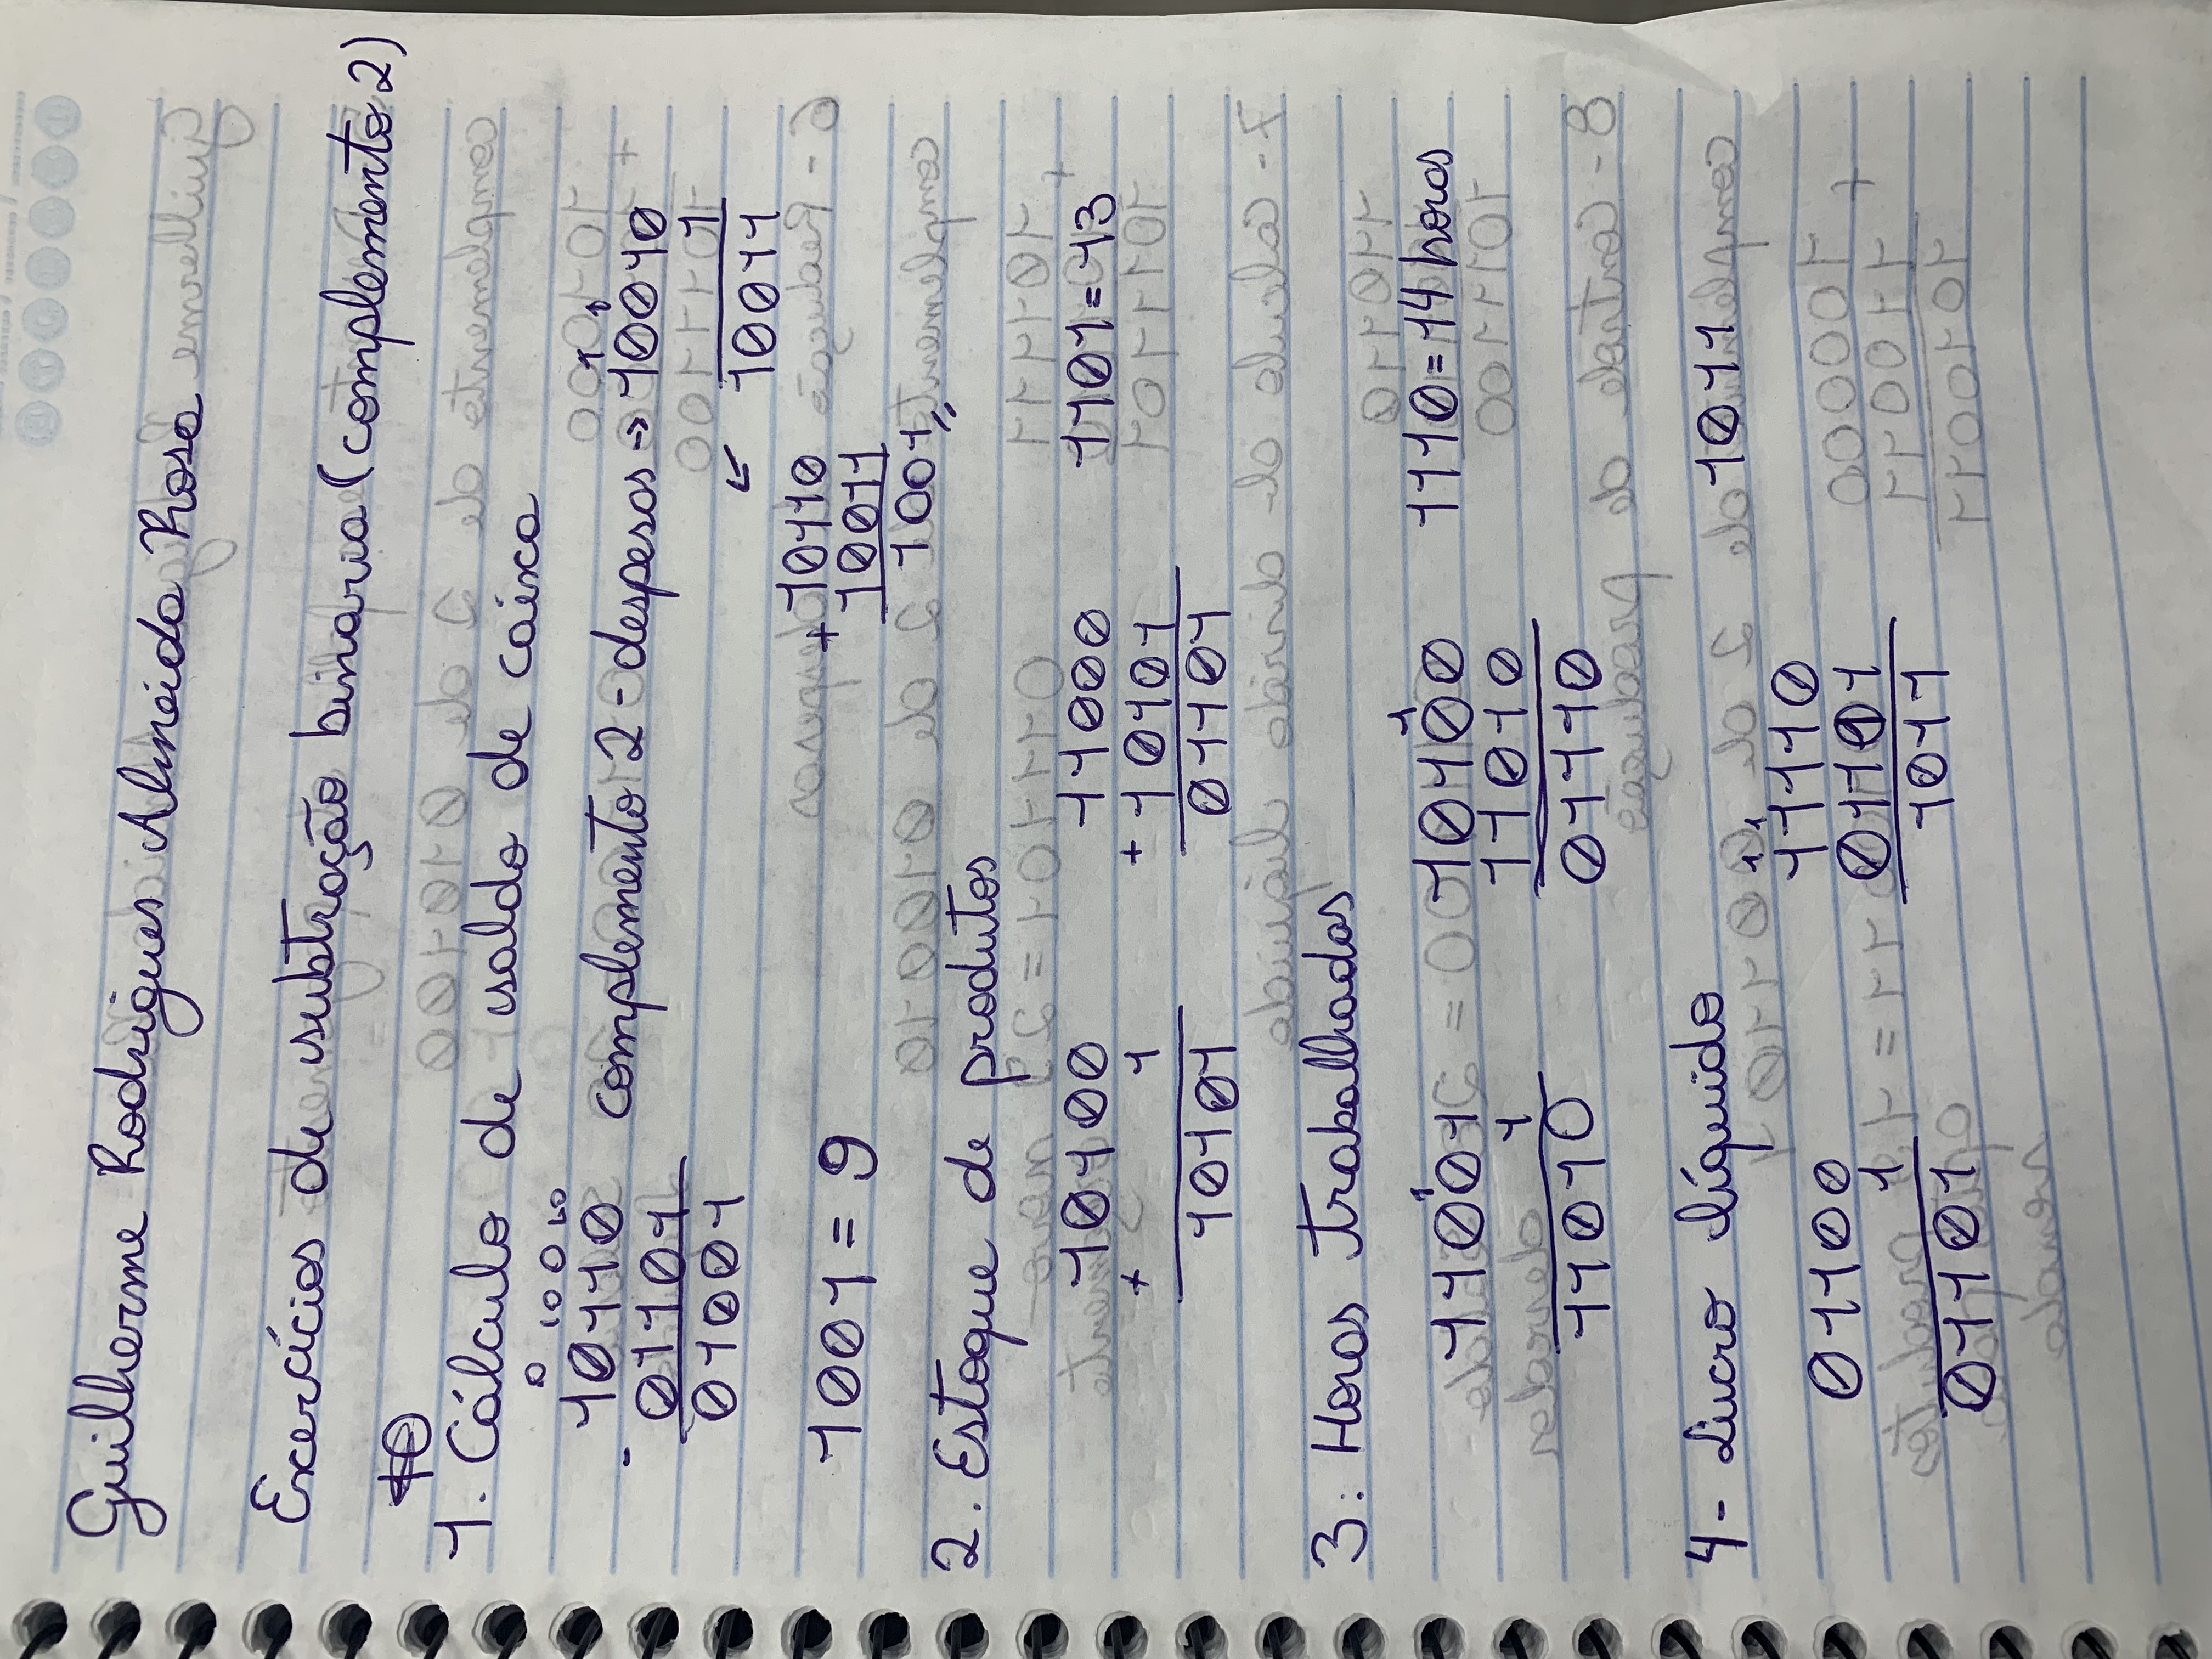 Guilherme Rodrigues Almeida Rosa
Exercícios de subtração binaria (complemento 2)
1. Cálculo de saldo de caixa
0 10 0 10
10110
- 01101
01001
complemento 2 - despesas →
1 1
10010
1
10011
↙
10110
+ 10011
1001
1001 = 9
2. Estoque de produtos
10100
+ 1
10101
11000
+ 10101
01101
1101 = 13
3. Horas trabalhadas
1
11001
1
11010
1
10100
11010
01110
1110 = 14 horas
4 - Lucro líquido
1011
01100
1
01101
1 1
11110
01101
1011